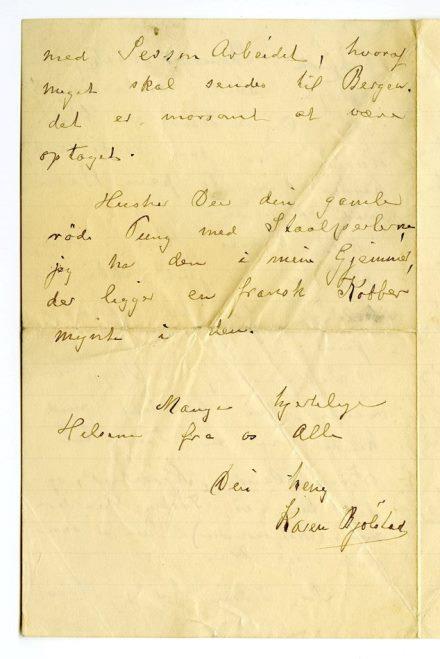 med Sesson Arbeidet, hvoraf
meget skal sendes til Bergen.
det er morsomt at være
optaget.
Husker Du din gamle
röde Pung med Staalperlerne,
jeg har den i mine Gjemmer,
der ligger en fransk Kobber
mynt i den.
Mange hjertelige
Hilsener fra os Alle
Din heng
Karen Bjölstad